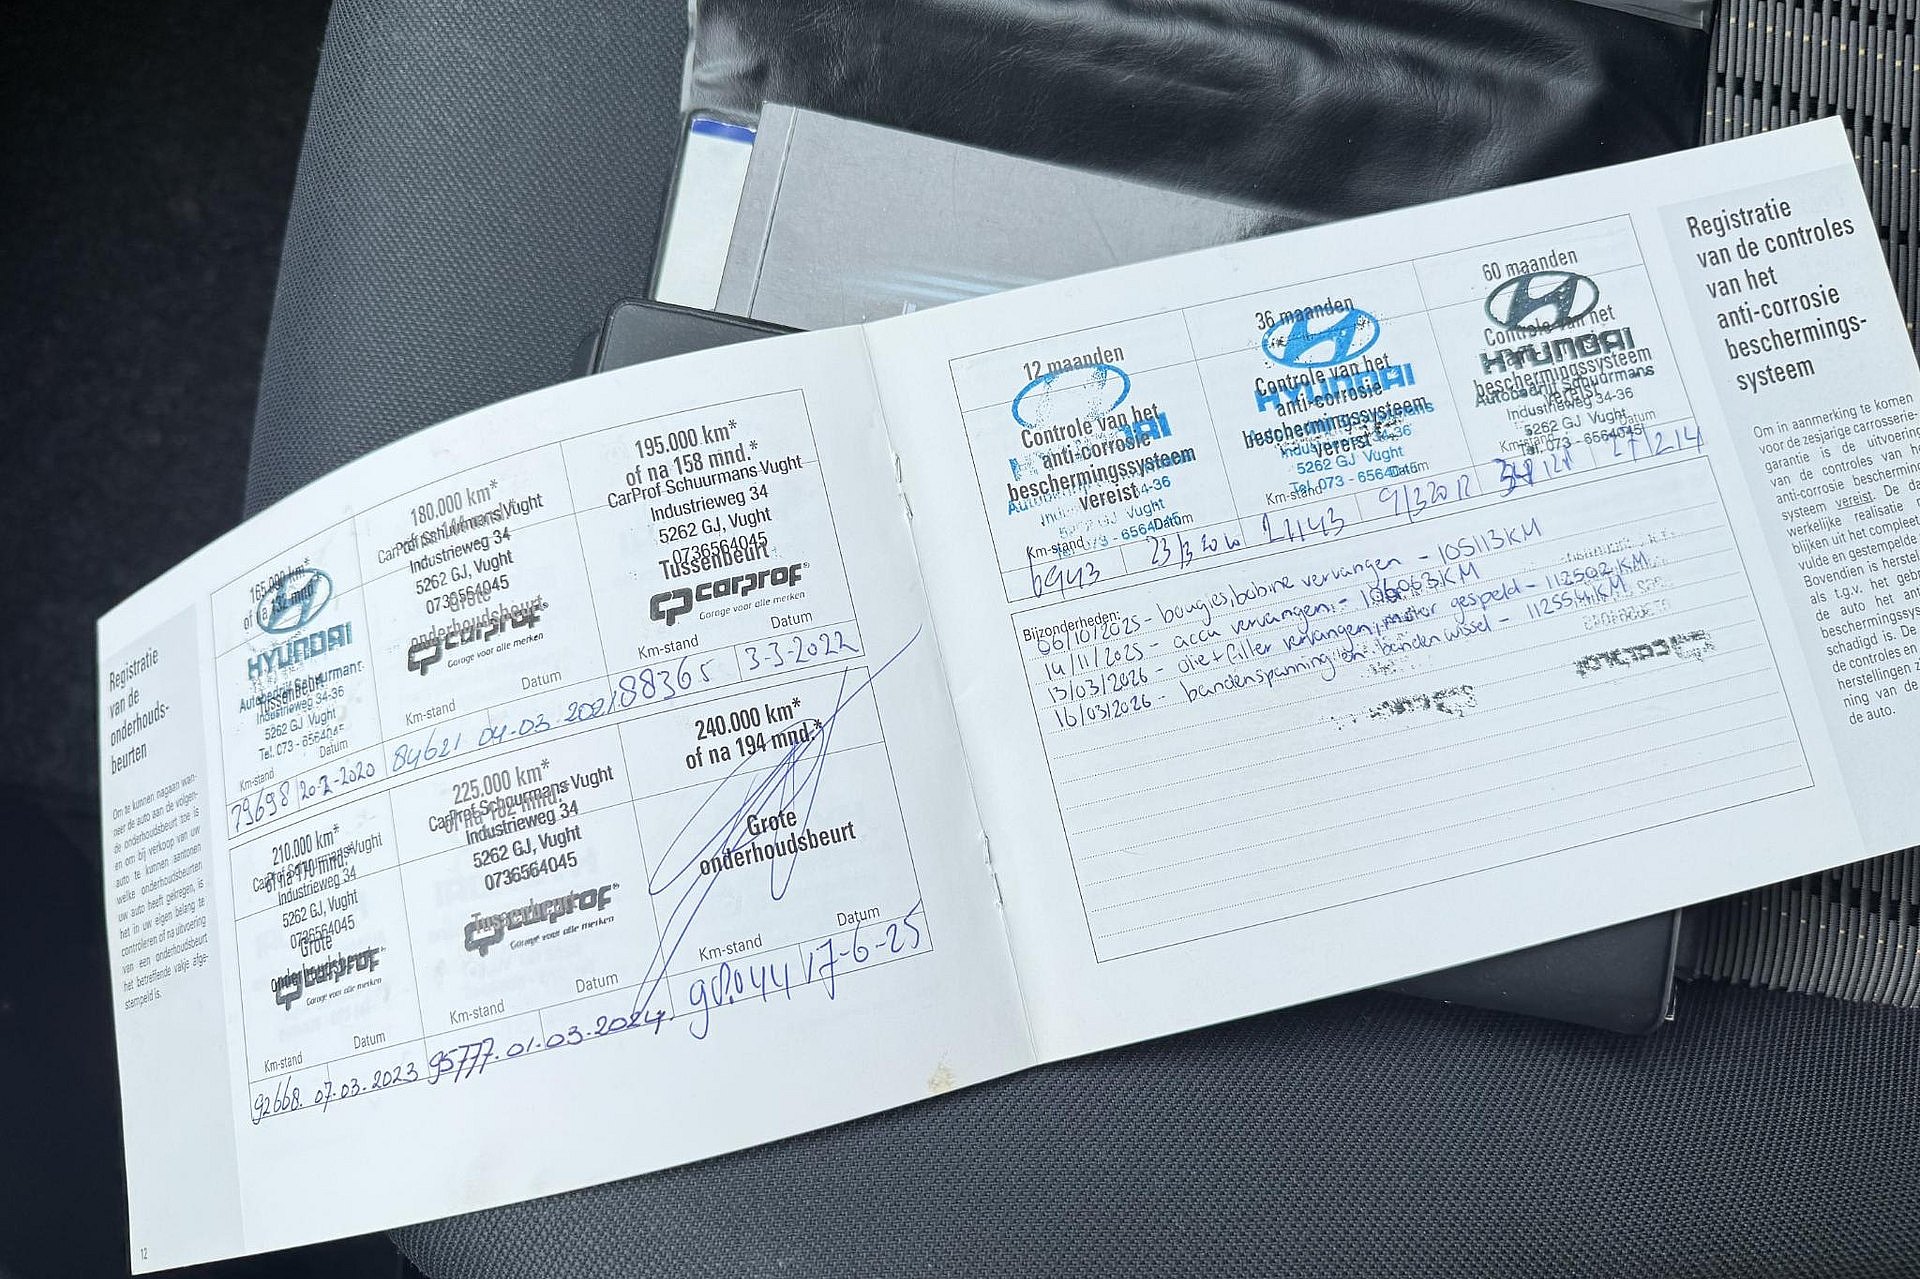 Registratie
van de
onderhouds-
beurten
Om te kunnen nagaan wan-
neer de auto aan de volgen-
de onderhoudsbeurt toe is
en om bij verkoop van uw
auto te kunnen aantonen
welke onderhoudsbeurten
uw auto heeft gekregen, is
het in uw eigen belang te
controleren of na uitvoering
van een onderhoudsbeurt
het betreffende vakje afge-
stempeld is.
165.000 km*
of na 132 mnd.*
HYUNDAI
Tussenbeurt
Industrieweg 34-36
5262 GJ Vught
Tel. 073 - 6564045
Km-stand Datum
79698 20-2-2020
180.000 km*
CarProf Schuurmans Vught
Industrieweg 34
5262 GJ, Vught
0736564045
Grote
onderhoudsbeurt
carprof
Garage voor alle merken
Km-stand Datum
84621 04-03-2021
195.000 km*
of na 158 mnd.*
CarProf Schuurmans Vught
Industrieweg 34
5262 GJ, Vught
0736564045
Tussenbeurt
carprof
Garage voor alle merken
Km-stand Datum
88365 3-3-2022
210.000 km*
of na 170 mnd.*
CarProf Schuurmans Vught
Industrieweg 34
5262 GJ, Vught
0736564045
Grote
onderhoudsbeurt
carprof
Garage voor alle merken
Km-stand Datum
92668. 07-03-2023
225.000 km*
of na 182 mnd.*
CarProf Schuurmans Vught
Industrieweg 34
5262 GJ, Vught
0736564045
Tussenbeurt
carprof
Garage voor alle merken
Km-stand Datum
95777. 01-03-2024.
240.000 km*
of na 194 mnd.*
Grote
onderhoudsbeurt
Km-stand Datum
17-6-25
12
12 maanden
Controle van het
anti-corrosie
beschermingssysteem
vereist
Km-stand Datum
6943
36 maanden
HYUNDAI
Controle van het
anti-corrosie
beschermingssysteem
vereist
5262 GJ Vught
Tel. 073 - 6564045
Km-stand Datum
9/3 2012
60 maanden
Controle van het
HYUNDAI
beschermingssysteem
Autobedrijf Schuurmans
vereist
Industrieweg 34-36
5262 GJ Vught
Tel. 073 - 6564045
Km-stand Datum
27/2 14
Bijzonderheden:
06/10/2025 - bougies, bobine vervangen - 105113 KM
14/11/2025 - accu vervangen - 106063 KM
13/03/2026 - olie + filter vervangen, motor gespeld - 112502 KM
16/03/2026 - bandenspanning en bandenwissel - 112554 KM
Registratie
van de controles
van het
anti-corrosie
beschermings-
systeem
Om in aanmerking te komen
voor de zesjarige carrosserie-
garantie is de uitvoering
van de controles van het
anti-corrosie
systeem vereist. De
werkelijke realisatie
blijken uit het
vulde en gestempelde
Bovendien is
als t.g.v. het
de auto het
schadigd is. De
de controles en
herstellingen
ning van de
de auto.